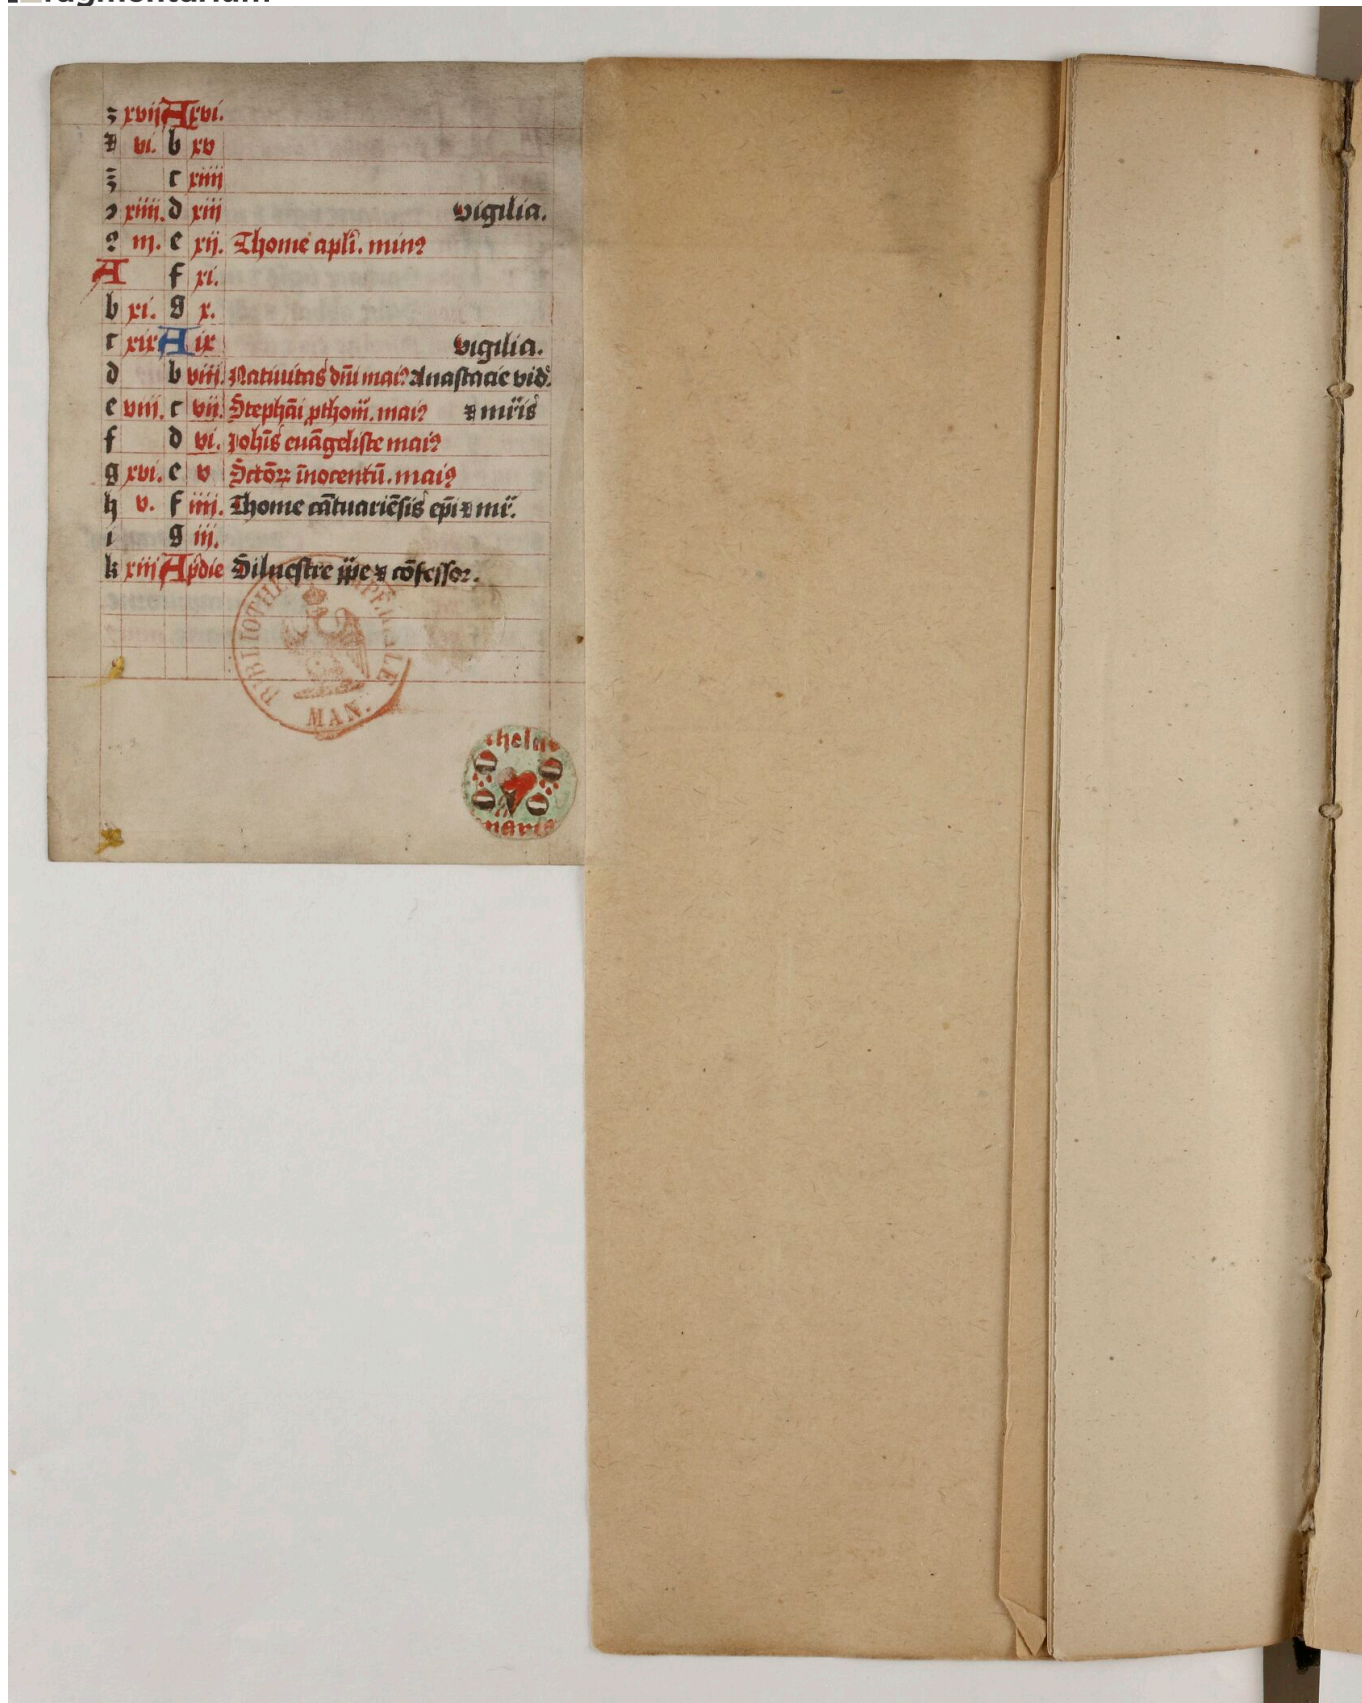 ragmentarium
z xvij A xvi.
vi. b xv
z c xiiii
xiiii. d xiii vigilia.
iii. e xij. Thome apli. min9
A f xi.
b xi. g x.
c xix A ix vigilia.
d b viij. Natiuitas dn̄i mai9 Anastacie vid̄.
e viij. c vij. Stephāi ꝓthom̄. mai9 ⁊ mr̄is
f d vi. Johīs euāgeliste mai9
g xvi. e v Sctōꝝ īnocentū. mai9
h v. f iiij. Thome cātuariēsis ep̄i ⁊ mr̄.
i g iij.
k xiij A pdie Siluestre pp̄e ⁊ cōfessor.
BIBLIOTHEQUE IMPERIALE
MAN.